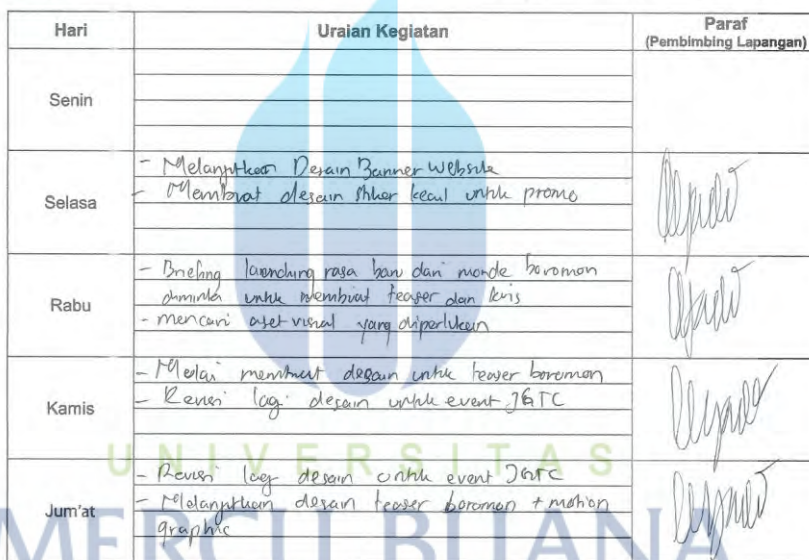 Hari Uraian Kegiatan Paraf
(Pembimbing Lapangan)
Senin
Selasa
- Melanjutkan Desain Banner Website
- Membuat desain stiker kecil untuk promo
Rabu
- Briefing launching rasa baru dari monde boromon
diminta untuk membuat teaser dan
- mencari aset visual yang diperlukan
Kamis
- Mulai membuat desain untuk teaser boromon
- Revisi lagi desain untuk event JGTC
Jum'at
- Revisi lagi desain untuk event JGTC
- Melanjutkan desain teaser boromon + motion
graphic
UNIVERSITAS
MERCU BUANA